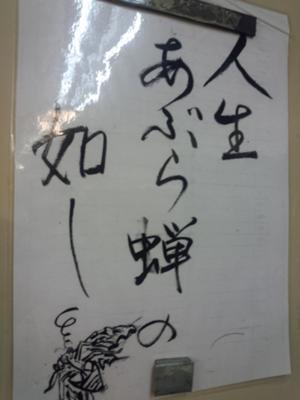 人生
あぶら蝉の
如し